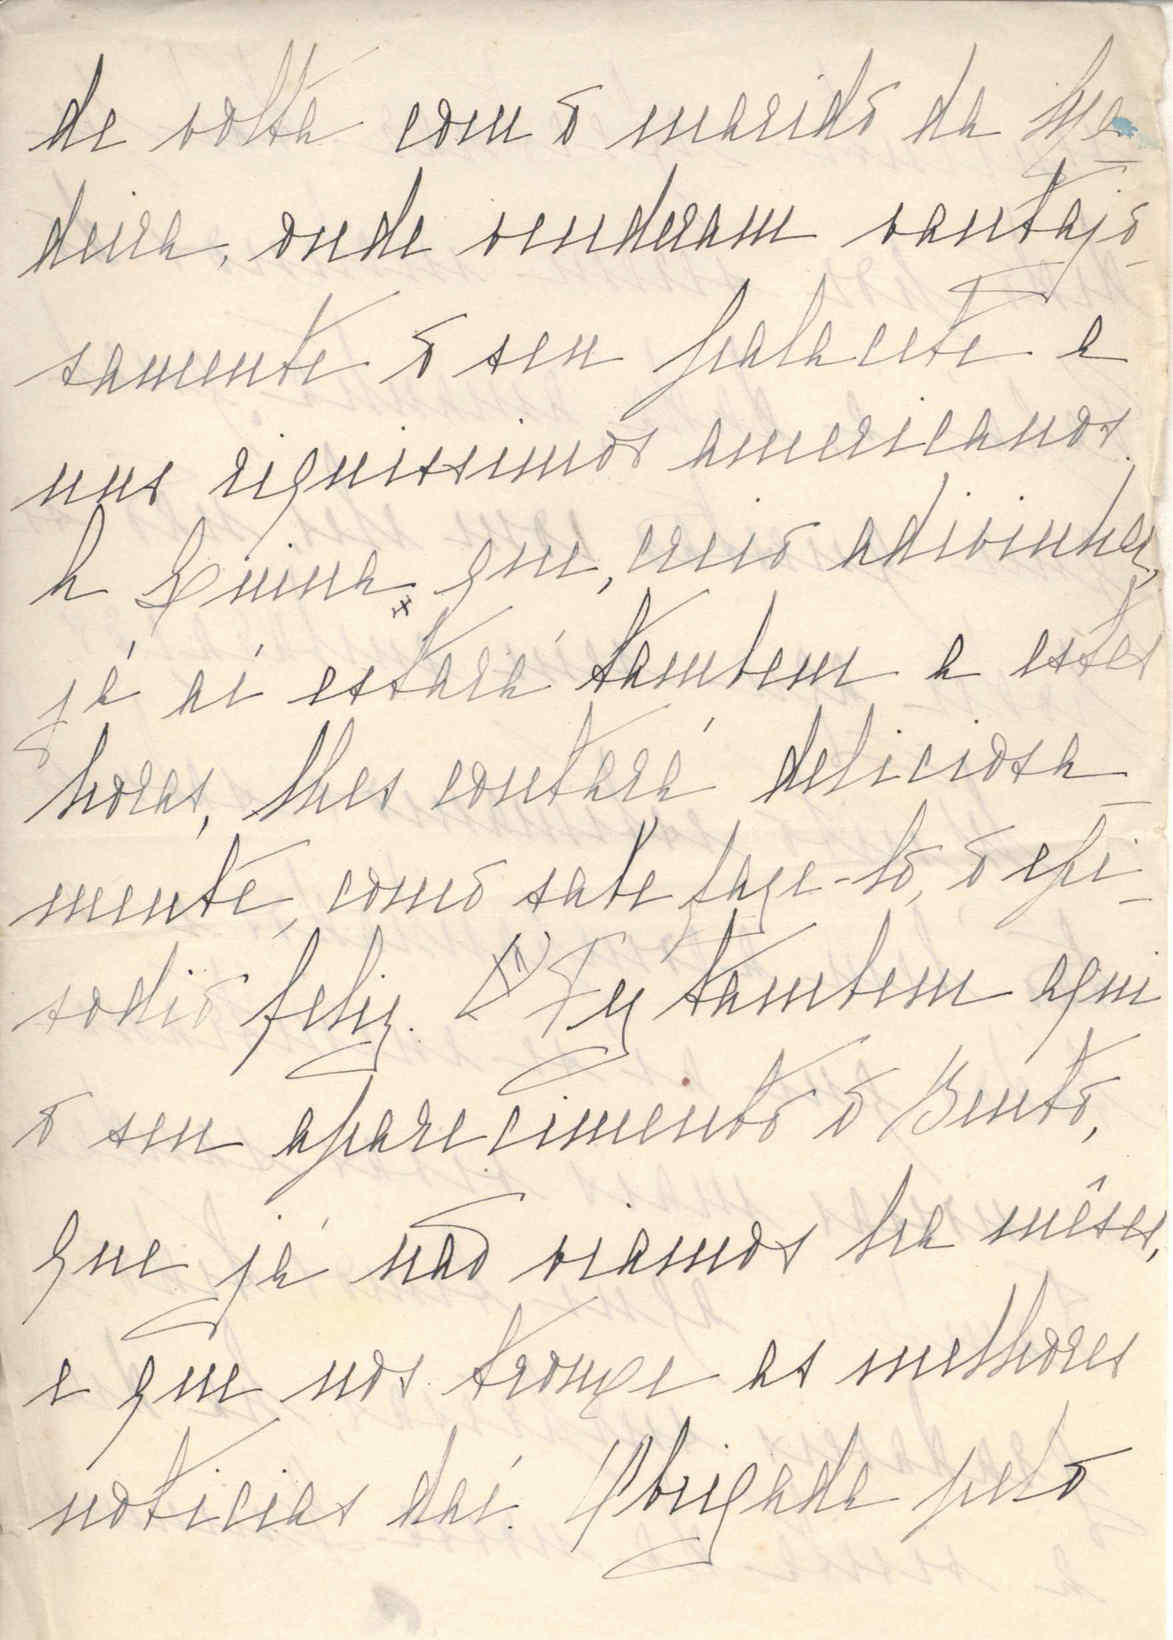 de volta com o marido da Ma-
deira, onde venderam vantajo-
samente o seu palacete a
uns riquissimos americanos.
A Quina, que, creio adivinhar,
já aí estará tambem a estas
horas, lhes contará deliciosa-
mente, como sabe faze-lo, o epi-
sodio feliz. Fez tambem aqui
o seu aparecimento o Bento,
que já não viamos ha mêses,
e que nos trouxe as melhores
noticias daí. Obrigada pelo